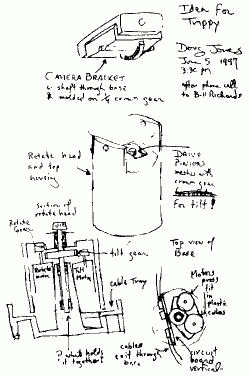 Idea for
Trippy
Doug Jones
June 5 1997
3:30 pm
after phone call
to Bill Richards
CAMERA BRACKET
c. shaft through base
& molded on 1/4 crown gear
Rotate head
and top
housing
DRIVE
PINIONS
meshes with
crown gear
For tilt!
section of
rotate head
Rotate
Gear
tilt gear
Rotate
motor
Tilt
Motor
cable Tray
? what holds
it together?
cables
exit through
base
Top view of
Base
Motors
press
fit
in
plastic
tubes
circuit
board
vertical